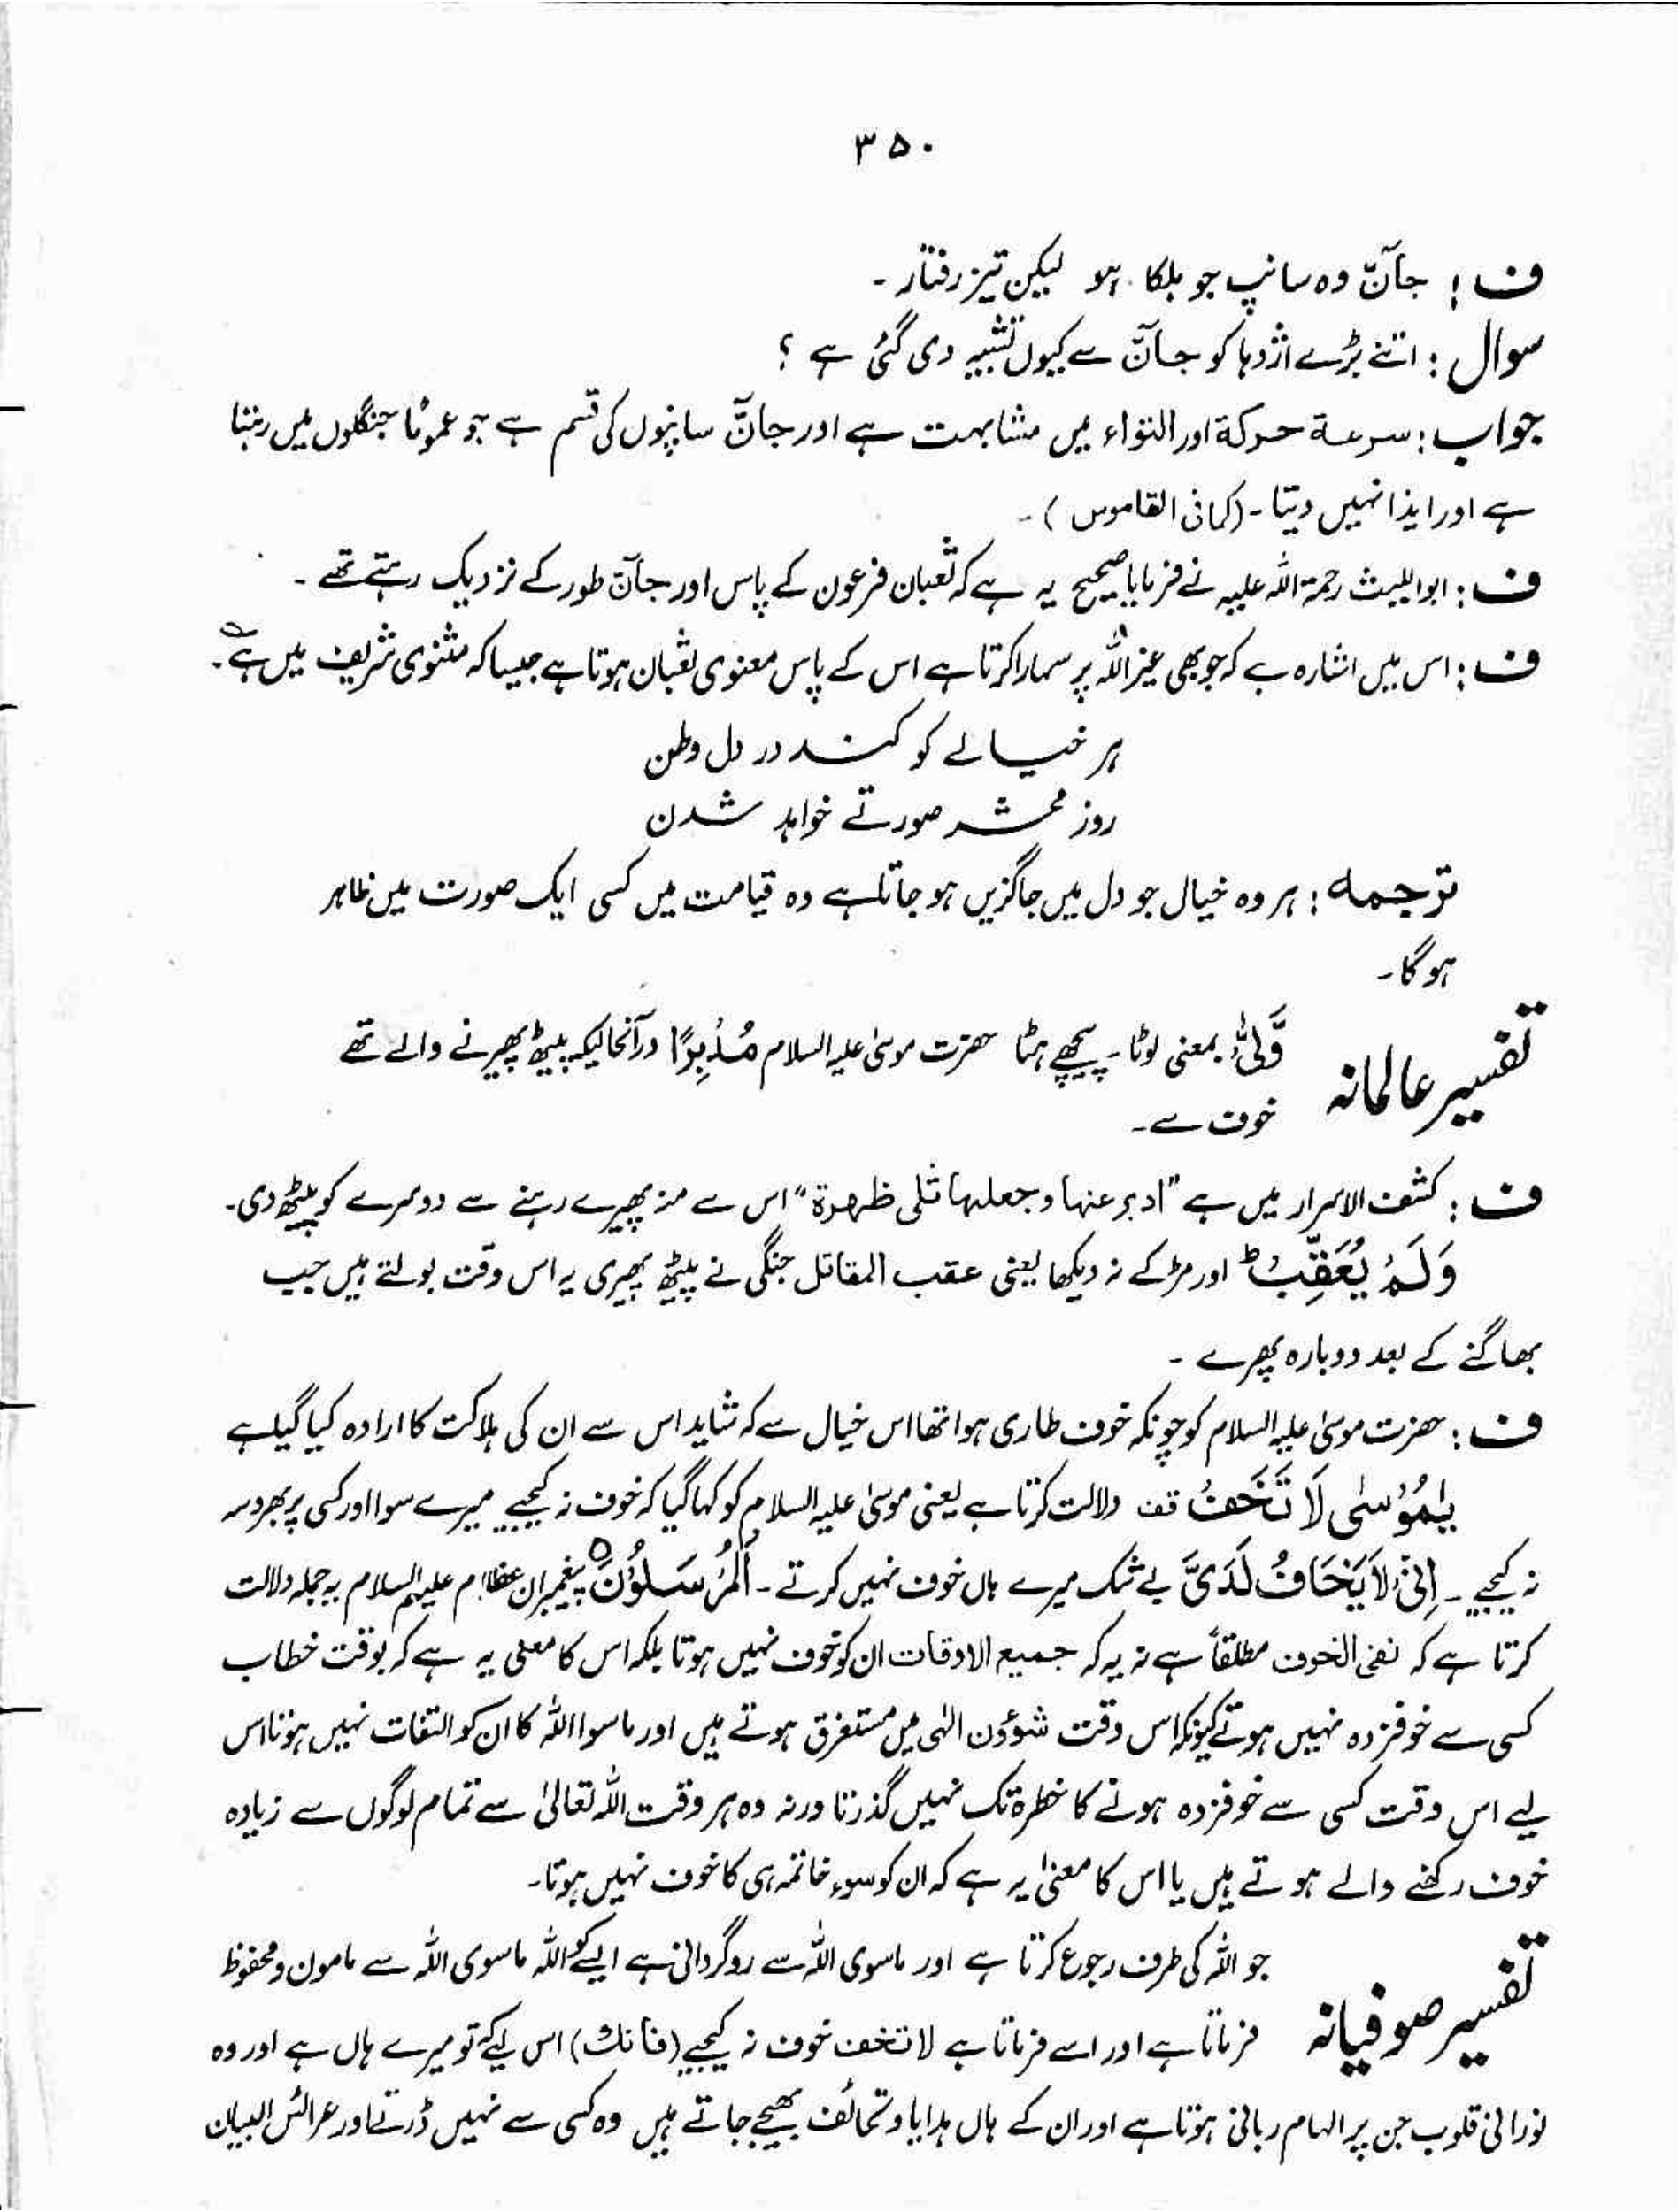 ۳۵۰
ف : جآنّ وہ سانپ جو ہلکا ہو لیکن تیز رفتار ۔
سوال : اتنے بڑے اژدہا کو جآنّ سے کیوں تشبیہ دی گئی ہے ؟
جواب : سرعة حركة اور التواء میں مشابہت ہے اور جآنّ سانپوں کی قسم ہے جو عمومًا جنگلوں میں رہتا
ہے اور ایذا نہیں دیتا ۔ (کمافی القاموس) ۔
ف : ابواللیث رحمۃ اللہ علیہ نے فرمایا صحیح یہ ہے کہ ثعبان فرعون کے پاس اور جآنّ طور کے نزدیک رہتے تھے ۔
ف : اس میں اشارہ ہے کہ جو بھی غیر اللہ پر سہارا کرتا ہے اس کے پاس معنوی ثعبان ہوتا ہے جیسا کہ مثنوی شریف میں ہے ۔
ہر خیالے کو کند در دل وطن
روز محشر صورتے خواہد شدن
ترجمہ : ہر وہ خیال جو دل میں جاگزیں ہو جاتا ہے وہ قیامت میں کسی ایک صورت میں ظاہر
ہو گا ۔
تفسیر عالمانہ
وَّلّٰى بمعنی لوٹا ۔ پیچھے ہٹا حضرت موسیٰ علیہ السلام مُدْبِرًا درآنحالیکہ پیٹھ پھیرنے والے تھے
خوف سے ۔
ف : کشف الاسرار میں ہے "ادبر عنہا وجعلہا تلی ظہرہ" اس سے منہ پھیرے رہنے سے دوسرے کو پیٹھ دی ۔
وَلَمْ يُعَقِّبْ ط اور مڑ کے نہ دیکھا یعنی عقب المقاتل جنگی نے پیٹھ پھیری یہ اس وقت بولتے ہیں جب
بھاگنے کے بعد دوبارہ پھرے ۔
ف : حضرت موسیٰ علیہ السلام کو چونکہ خوف طاری ہوا تھا اس خیال سے کہ شاید اس سے ان کی ہلاکت کا ارادہ کیا گیا ہے
يٰمُوْسٰى لَا تَخَفْ قف دلالت کرتا ہے یعنی موسیٰ علیہ السلام کو کہا گیا کہ خوف نہ کیجیے میرے سوا اور کسی پر بھروسہ
نہ کیجیے ۔ اِنِّيْ لَا يَخَافُ لَدَيَّ بے شک میرے ہاں خوف نہیں کرتے ۔ الْمُرْسَلُوْنَ پیغمبران عظام علیہم السلام یہ جملہ دلالت
کرتا ہے کہ نفی الخوف مطلقاً ہے نہ یہ کہ جمیع الاوقات ان کو خوف نہیں ہوتا بلکہ اس کا معنی یہ ہے کہ بوقت خطاب
کسی سے خوفزدہ نہیں ہوتے کیونکہ اس وقت شوؤن الٰہی میں مستغرق ہوتے ہیں اور ماسوا اللہ کا ان کو التفات نہیں ہوتا اس
لیے اس وقت کسی سے خوفزدہ ہونے کا خطرہ تک نہیں گذرتا ورنہ وہ ہر وقت اللہ تعالیٰ سے تمام لوگوں سے زیادہ
خوف رکھنے والے ہوتے ہیں یا اس کا معنیٰ یہ ہے کہ ان کو سوء خاتمہ ہی کا خوف نہیں ہوتا ۔
تفسیر صوفیانہ
جو اللہ کی طرف رجوع کرتا ہے اور ماسوی اللہ سے روگردانی ہے ایسے کو اللہ ماسوی اللہ سے مامون و محفوظ
فرماتا ہے اور اسے فرماتا ہے لا تخف خوف نہ کیجیے (فانك) اس لیے کہ تو میرے ہاں ہے اور وہ
نورانی قلوب جن پر الہام ربانی ہوتا ہے اور ان کے ہاں ہدایا و تحائف بھیجے جاتے ہیں وہ کسی سے نہیں ڈرتے اور عرائس البیان